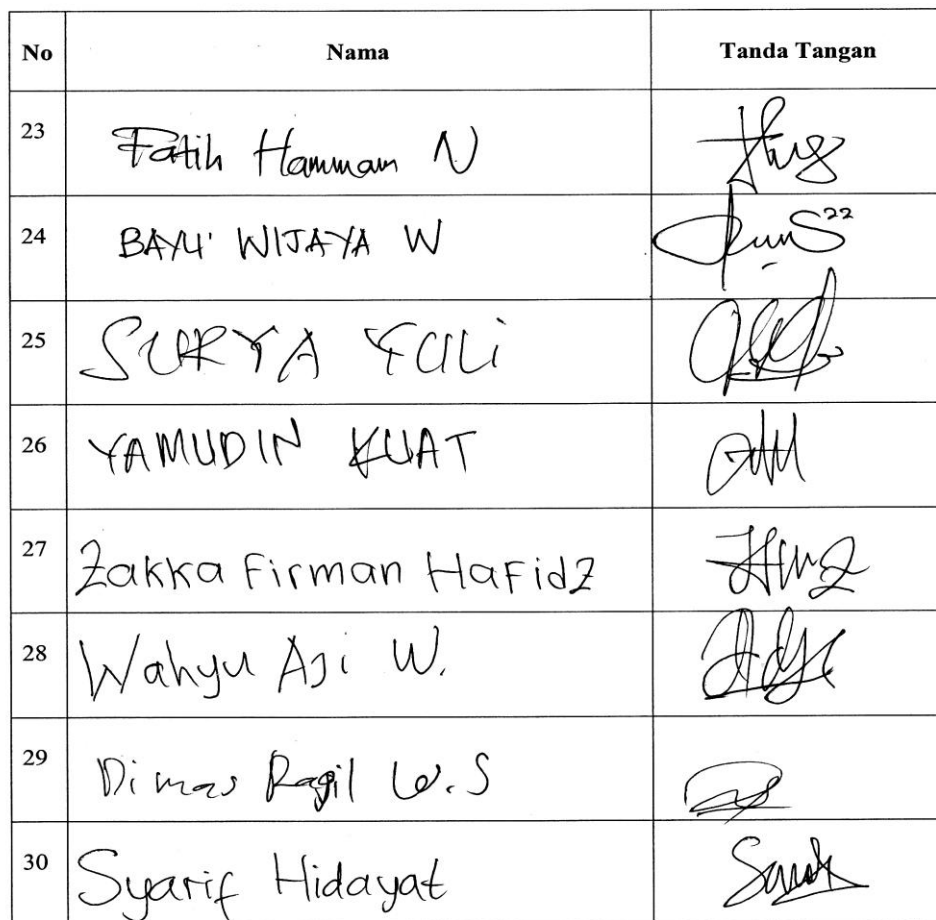 No Nama Tanda Tangan
23 Fatih Hammam N
24 BAYU WIJAYA W
25 SURYA YULI
26 YAMUDIN KUAT
27 Zakka Firman HaFidz
28 Wahyu Aji W.
29 Dimas Ragil W.S
30 Syarif Hidayat